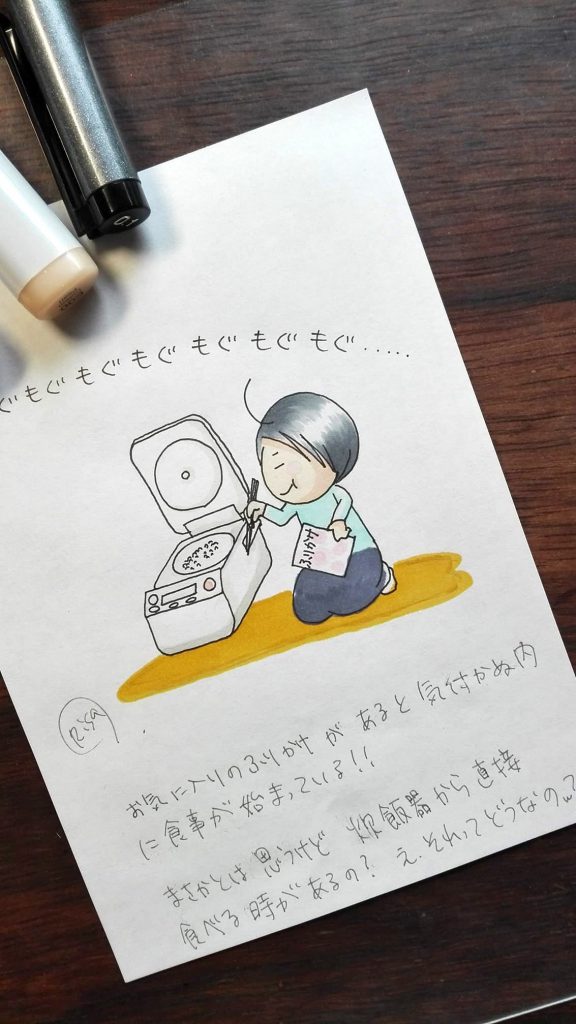 ぐもぐもぐもぐもぐもぐもぐ.....
ふりかけ
Risa
お気に入りのふりかけがあると気付かぬ内
に食事が始まっている!!
まさかとは思うけど 炊飯器から直接
食べる時があるの? え、それってどうなの?